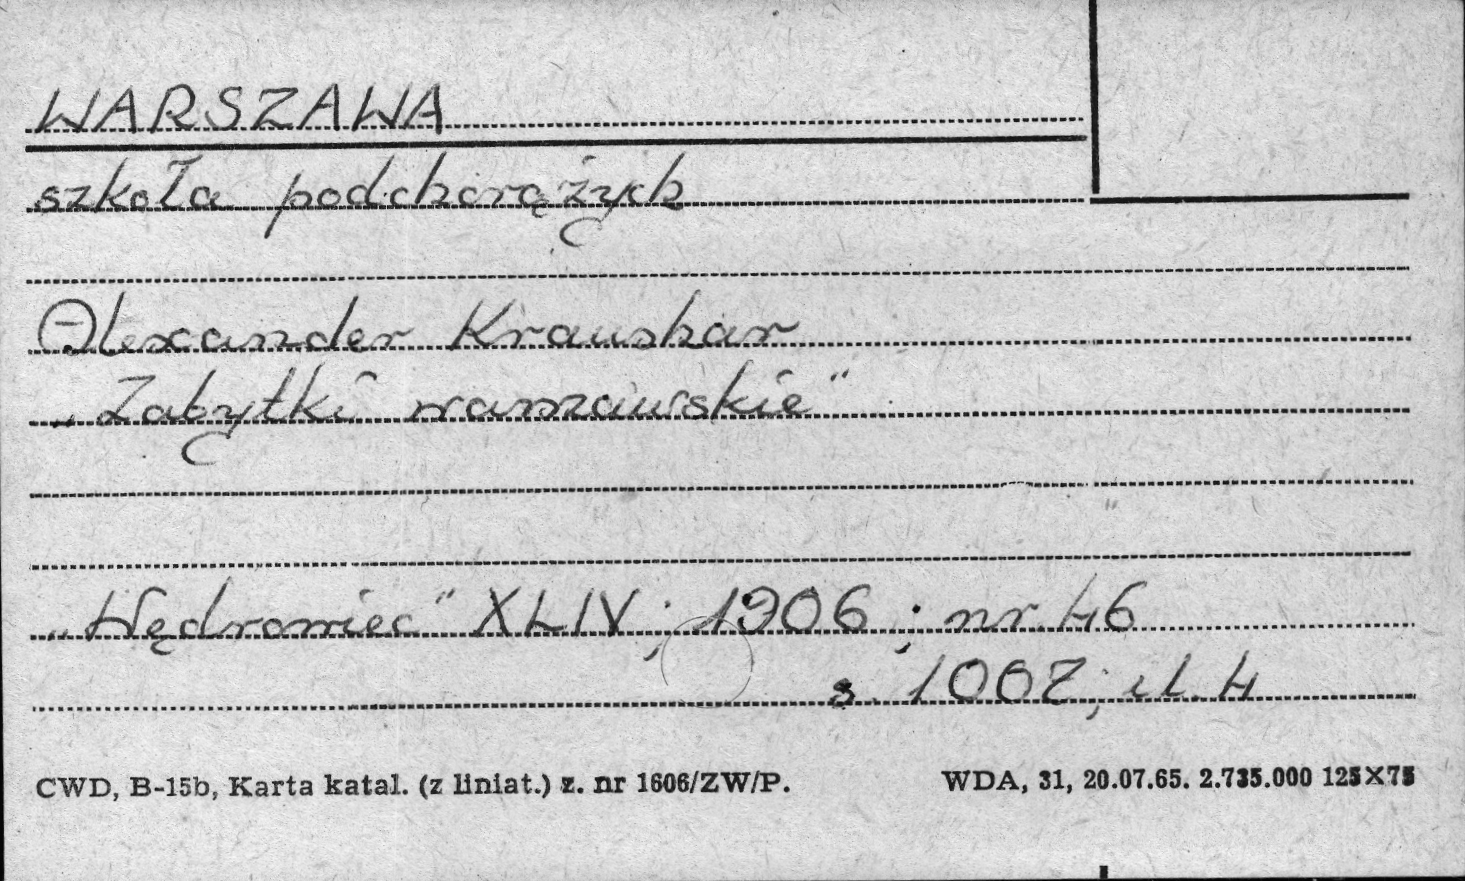 WARSZAWA
szkoła podchorążych
Alexander Kraushar
„Zabytki warszawskie"
„Wędrowiec" XLIV; 1906; nr. 46
s. 1002; il. 4
CWD, B-15b, Karta katal. (z liniat.) z. nr 1606/ZW/P. WDA, 31, 20.07.65. 2.735.000 125X75